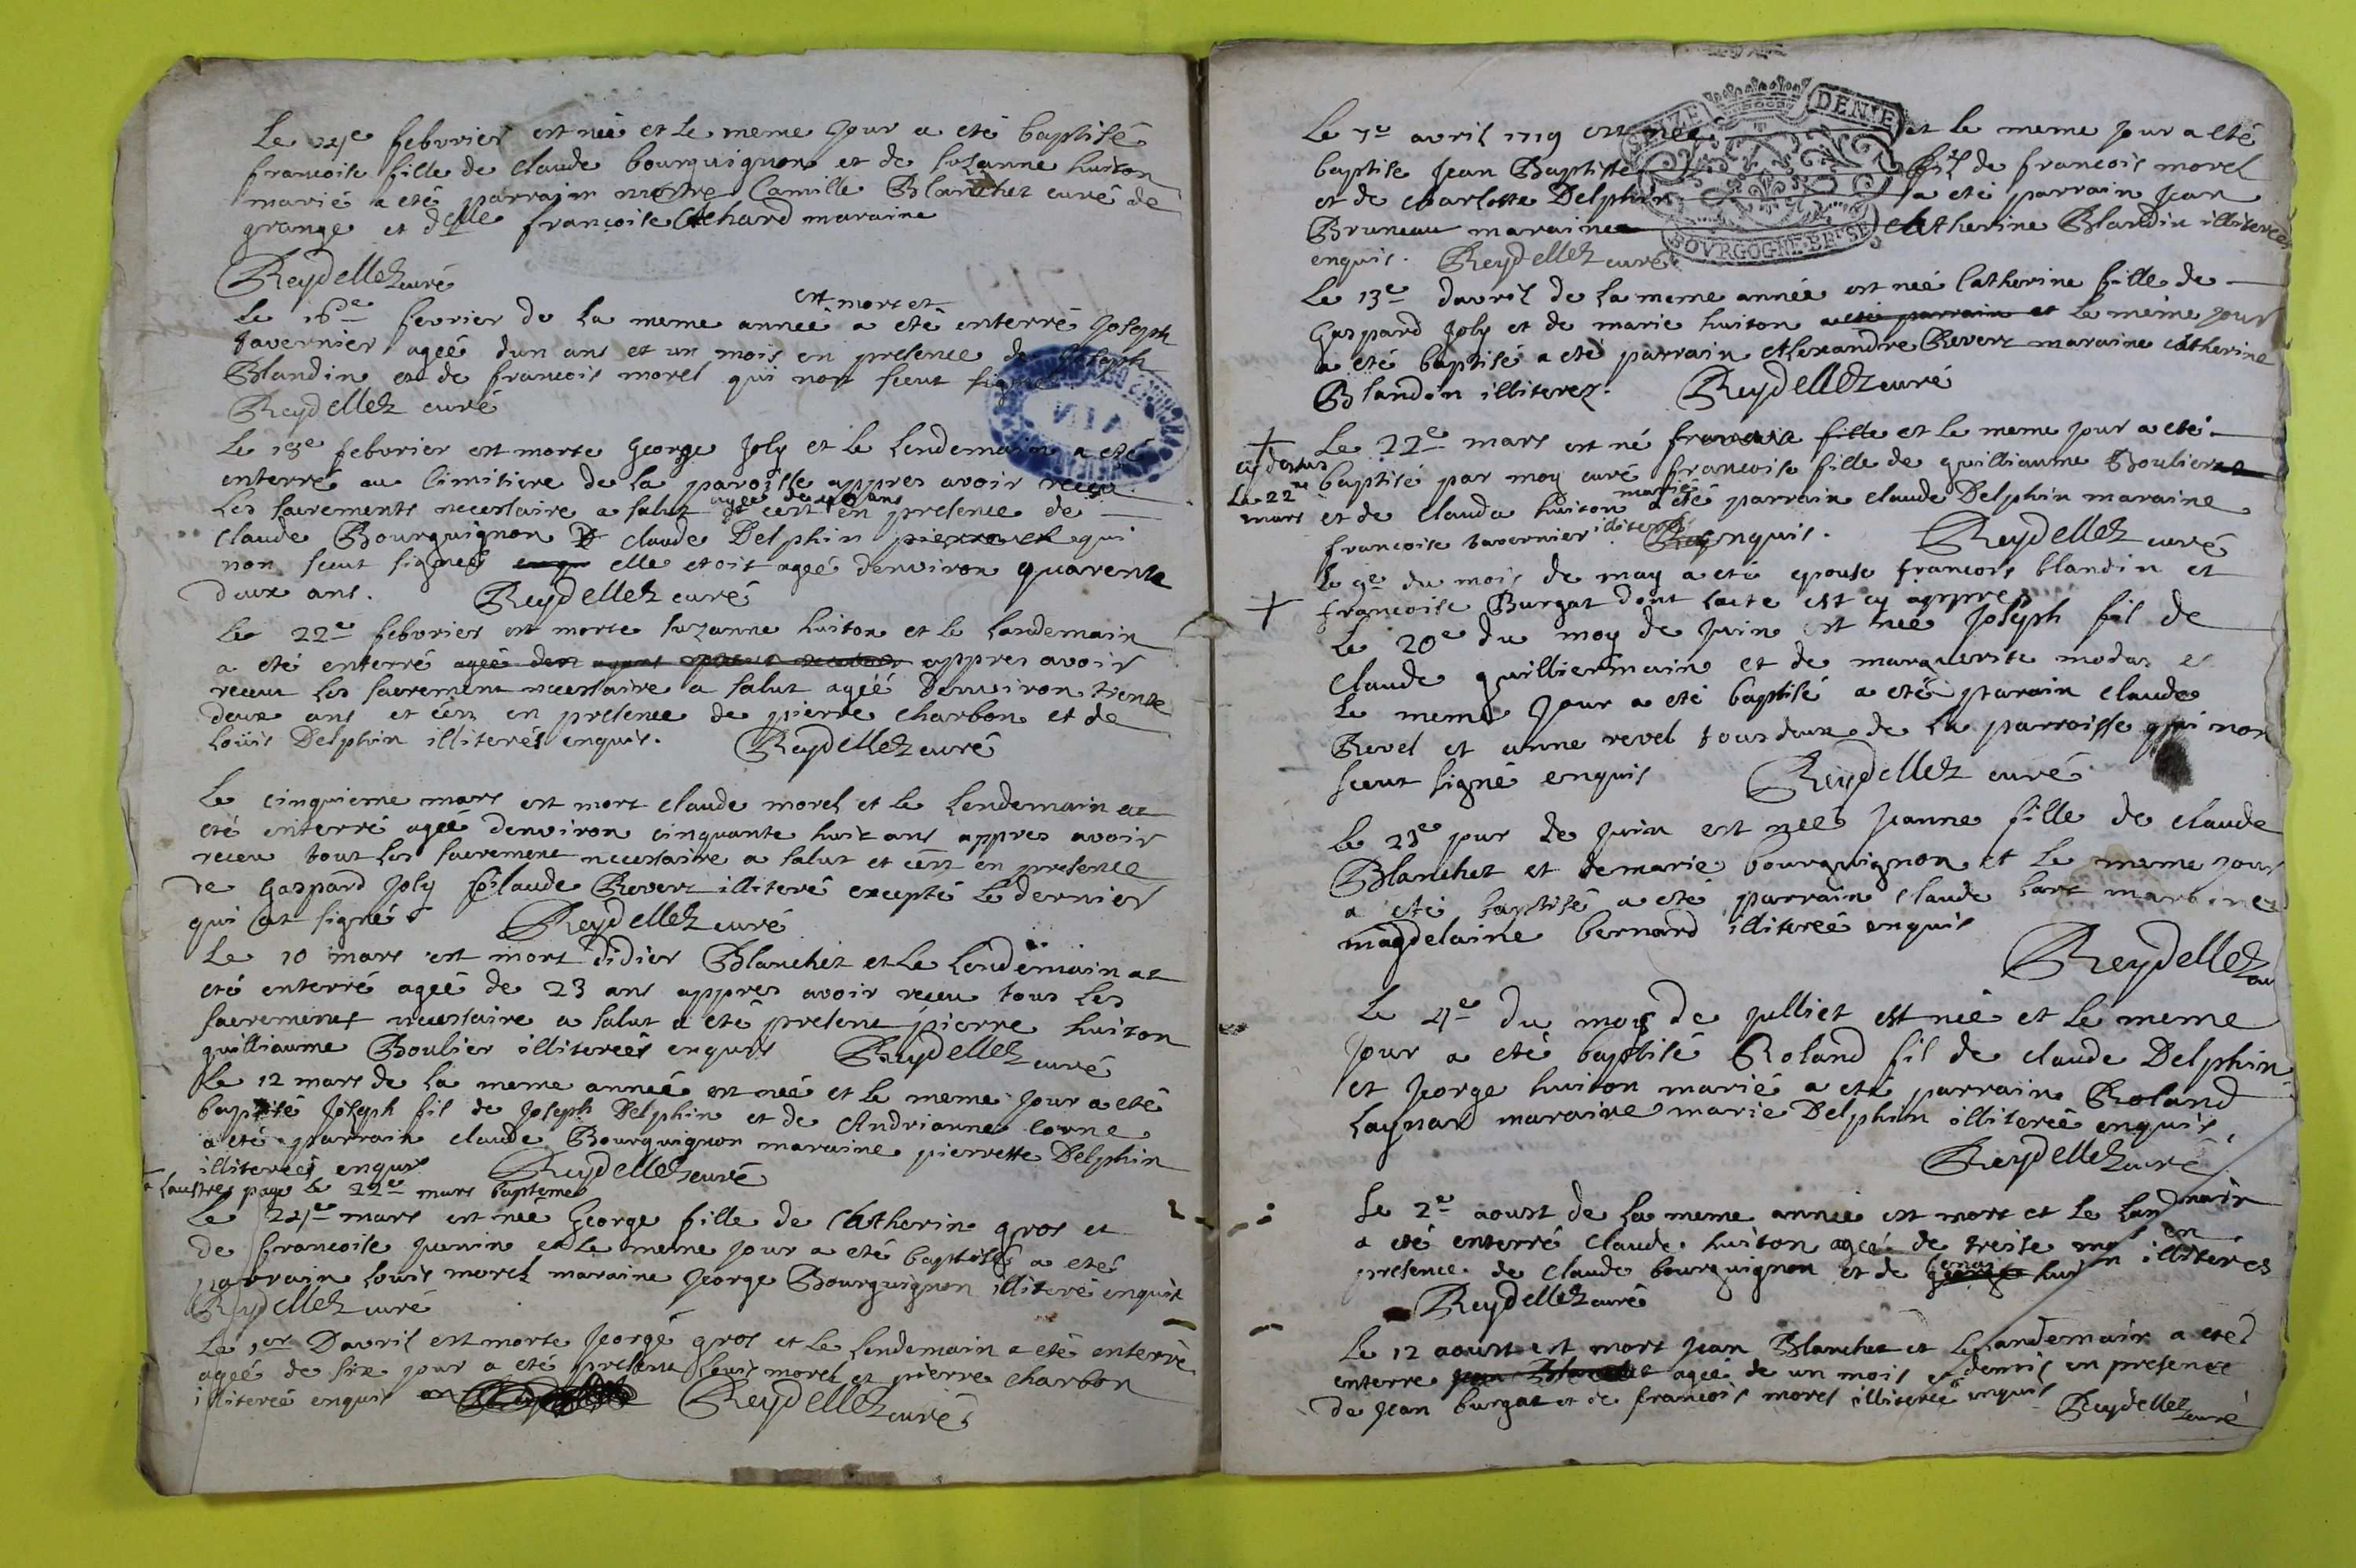 Le 24e febvrier est née et le meme jour a eté baptisé
francoise fille de claude bourguignon et de suzanne huiton
marié a eté parrain Camille Blanchet curé de
grange et delle francoise maraine
Reydellet curé
est mort et
Le 16e fevrier de la meme année a eté enterré Joseph
tavernier ageé dun ans et un mois en presence de Joseph
Blandin et de francois morel qui non sceut signé
Reydellet curé
Le 18e febvrier est morte George Joly et le lendemain a eté
enterré au Cimitiere de la paroisse appres avoir receu
ageé de 40 ans
les sacrements necessaire a salut et cest en presence de
claude Bourguignon claude Delphin pierre qui
non sceut signés elle etoit ageé denviron quarente
deux ans. Reydellet curé
Le 22e febvrier est morte suzanne huiton et le landemain
a eté enterré appres avoir
receu les sacrement necessaire a salut ageé denviron trente
deux ans et cest en presence de pierre charbon et de
Loüis Delphin illiterés enquis. Reydellet curé
Le cinquieme mars est mort claude morel et le lendemain at
eté enterré ageé denviron cinquante huit ans appres avoir
receu tout les sacrement necessaire a salut et cest en presence
de Gaspard Joly claude Revert illiteré excepté le dernier
qui at signé Reydellet curé
Le 10 mars est mort didier Blanchet et le lendemain at
eté enterré ageé de 23 ans appres avoir receu tous les
sacrements necessaire a salut a eté present pierre huiton
guilliaume Boulier illitereés enquis Reydellet curé
Le 12 mars de la meme année est née et le meme jour a eté
baptisé Joseph fil de Joseph Delphin et de Andrianne Corne
a eté parrain claude Bourguignon maraine pierrette Delphin
illitereés enquis Reydellet curé
a lautres page le 22e mars bapteme
Le 24e mars est née George fille de Catherin gros et
de francoise Junin et le meme jour a eté baptisé a eté
parrain Louis morel maraine Jeorge Bourguignon illiteré enquis
Reydellet curé
Le 1er Davril est morte Jeorge gros et le lendemain a eté enterré
ageé de six jour a eté present Louis morel et pierre charbon
illitereé enquis Reydellet curé
SEIZE DENIE
BOVRGOGNE BRESSE
Le 7e avril 1719 est née et le meme jour a eté
baptise Jean Baptiste fil de francois morel
et de charlotte Delphin a eté parrain Jean
Bruneau maraine Catherine Blandin illitereés
enquis. Reydellet curé
Le 13e davril de la meme année est née Catherine fille de
Gaspard Joly et de marie huiton a eté parrain et le même jour
a eté baptisé a eté parrain Alexandre Revert maraine Catherine
Blandin illiterez. Reydellet curé
Le 22e mars est né francoise fille et le meme jour a eté
cy dessus
Le 22me
mars
baptisé par moy curé francoise fille de guilliaume Boulier
marié
et de Clauda huiton a eté parrain claude Delphin maraine
francoise tavernier illiteré enquis. Reydellet curé
Le 9e du mois de may a eté epousé francois blandin et
francoise Burgat dont lacte est cy appres
Le 20e du moy de Juin est née Joseph fil de
Claude guilliermain et de marguerite modas et
le meme jour a eté baptisé a eté parain claude
Revel et anne revel tous deux de la parroisse qui non
sceut signé enquis Reydellet curé
Le 23e jour de Juin est née Jeanne fille de claude
Blanchet et de marie bourguignon et le meme jour
a eté baptisé a eté parrain claude maraine
magdelaine bernard illitereé enquis
Reydellet cu
Le 4e du moy de Julliet est née et le meme
Jour a eté baptisé Roland fil de claude Delphin
et Jeorge huiton marié a eté parrain Roland
Laynard maraine marie Delphin illitereé enquis
Reydellet curé
Le 2e aoust de la meme année est mort et le landmain
a eté enterré claude huiton ageé de treise moi en
presence de claude bourguignon et de huiton illiterés
Reydellet curé
Le 12 aoust est mort Jean Blanchet et le landemain a eté
enterre jean Blanchet ageé de un mois et demis en presence
de Jean burgat et de francois morel illitereé enquis Reydellet curé